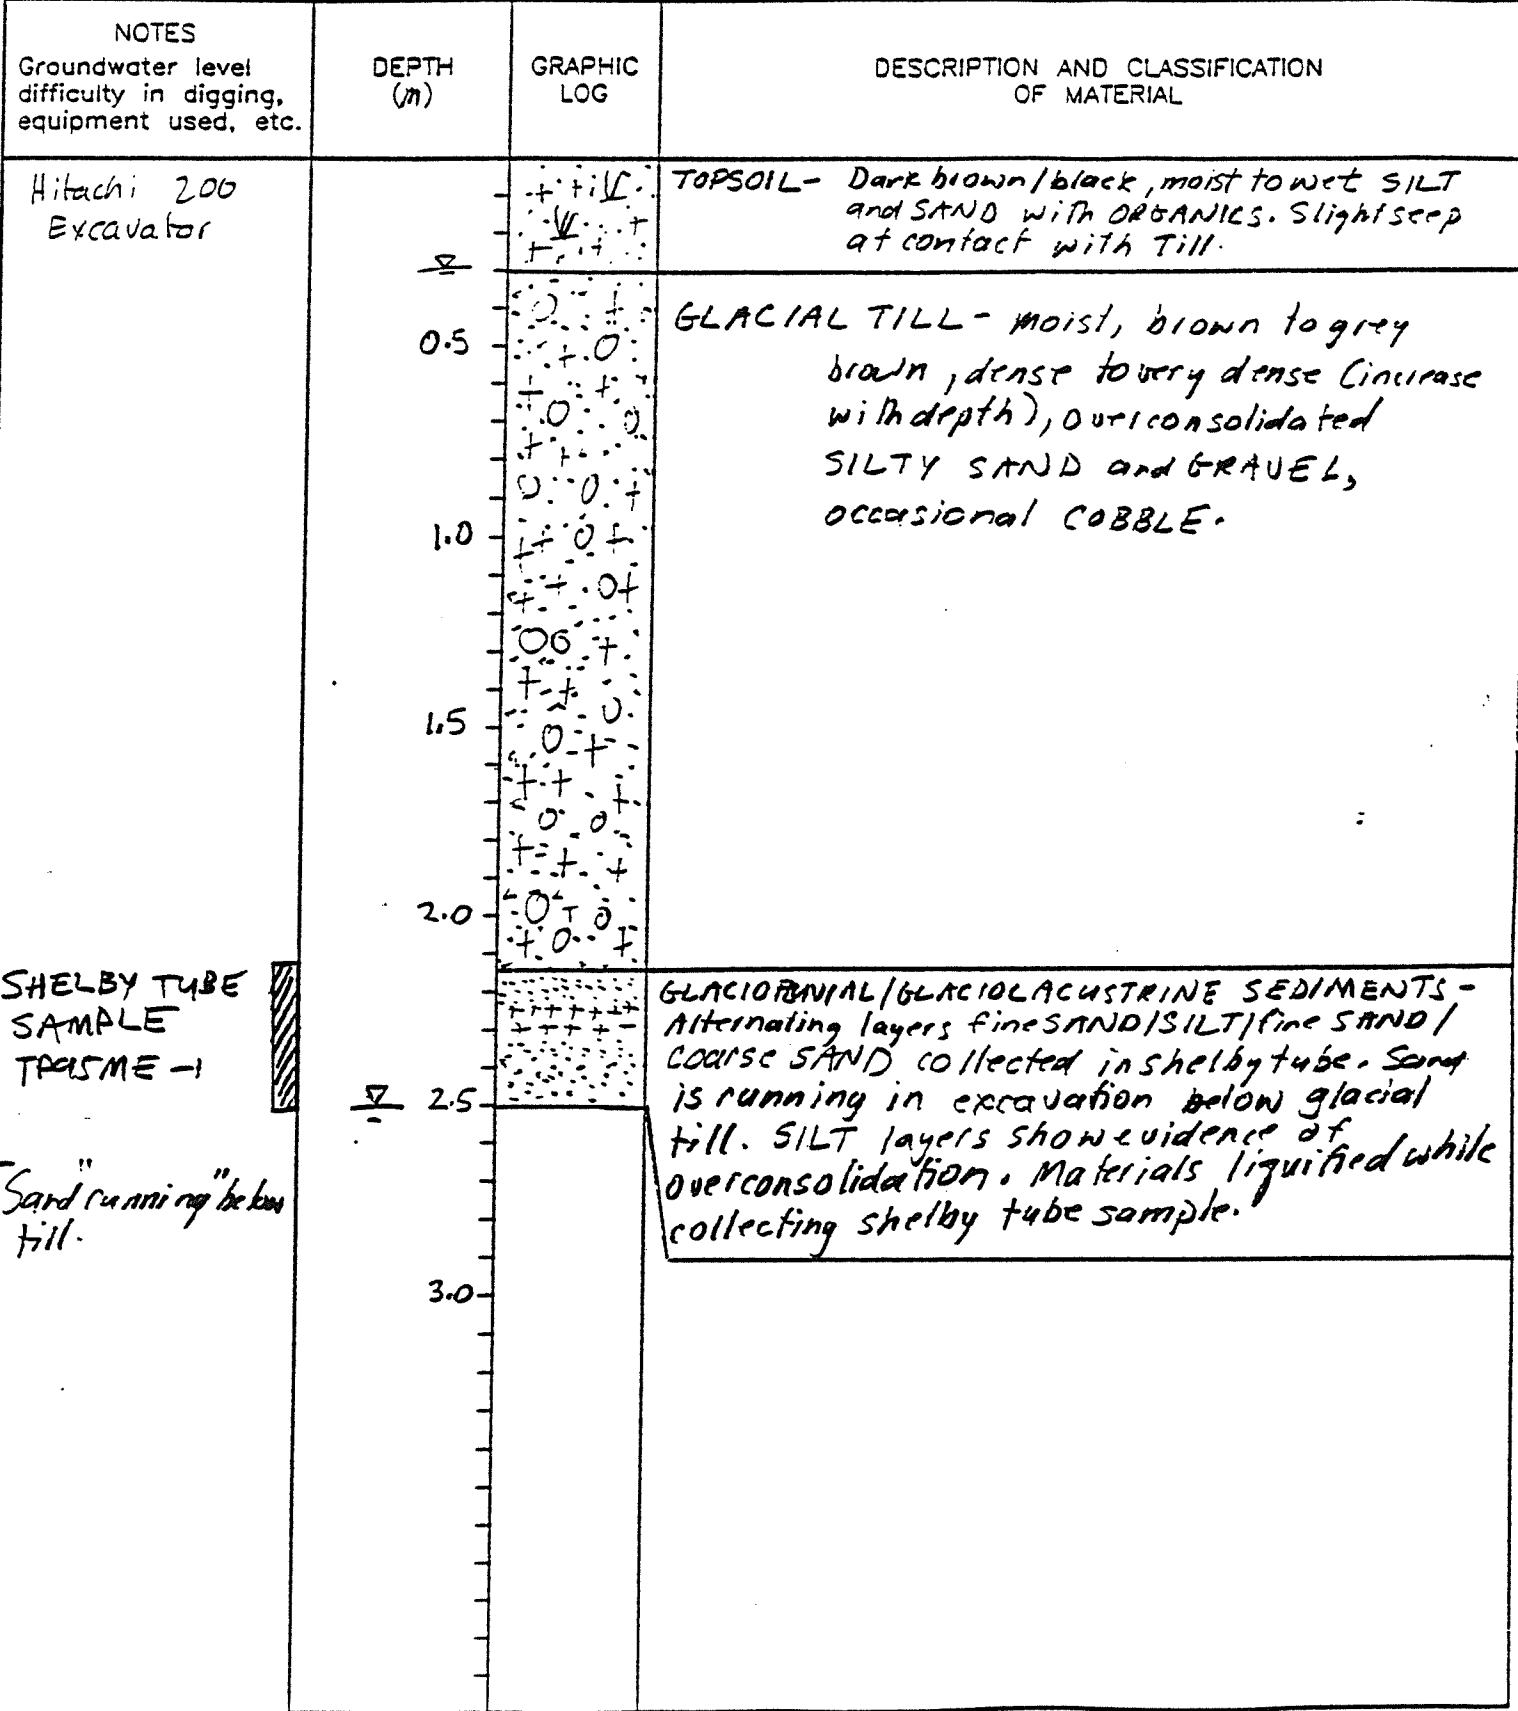 NOTES
Groundwater level
difficulty in digging,
equipment used, etc.
DEPTH
(m)
GRAPHIC
LOG
DESCRIPTION AND CLASSIFICATION
OF MATERIAL
Hitachi 200
Excavator
TOPSOIL- Dark brown/black, moist to wet SILT
and SAND with ORGANICS. Slight seep
at contact with Till.
0.5
GLACIAL TILL - moist, brown to grey
brown, dense to very dense (increase
with depth), overconsolidated
SILTY SAND and GRAVEL,
occasional COBBLE.
1.0
1.5
2.0
SHELBY TUBE
SAMPLE
-1
2.5
GLACIOFLUVIAL/GLACIOLACUSTRINE SEDIMENTS -
Alternating layers fine SAND/SILT/fine SAND/
coarse SAND collected in shelby tube. Sand
is running in excavation below glacial
till. SILT layers show evidence of
overconsolidation. Materials liquified while
collecting shelby tube sample.
- "Sand running" below
till.
3.0